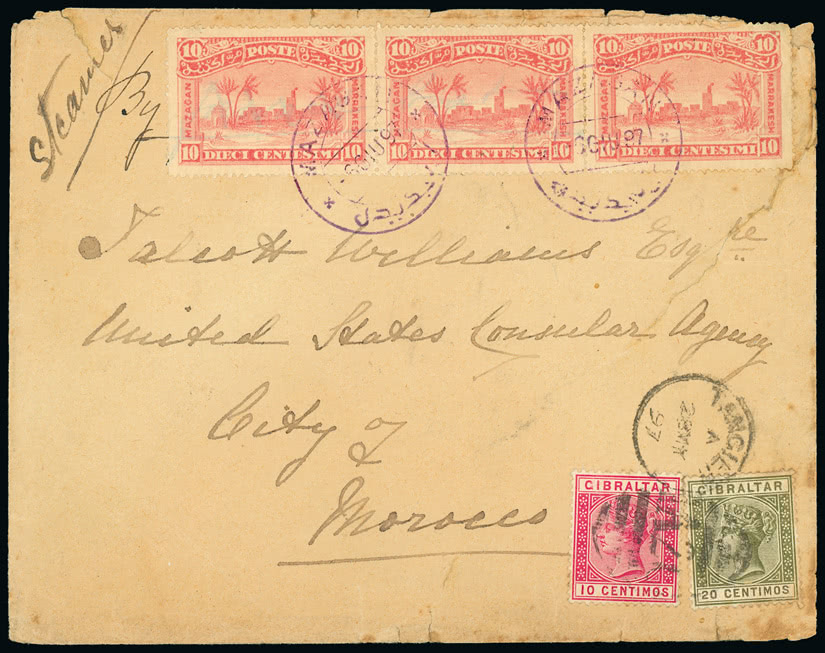 Steamer
By
10 POSTE 10
MAZAGAN MARRAKESH
10 DIECI CENTESIMI 10
10 POSTE 10
MAZAGAN MARRAKESH
10 DIECI CENTESIMI 10
10 POSTE 10
MAZAGAN MARRAKESH
10 DIECI CENTESIMI 10
MAZAGAN
MAZAGAN
97
Talcott Williams Esqre
United States Consular Agency
City of
Morocco
TANGIER
A
97
GIBRALTAR
10 CENTIMOS
GIBRALTAR
20 CENTIMOS